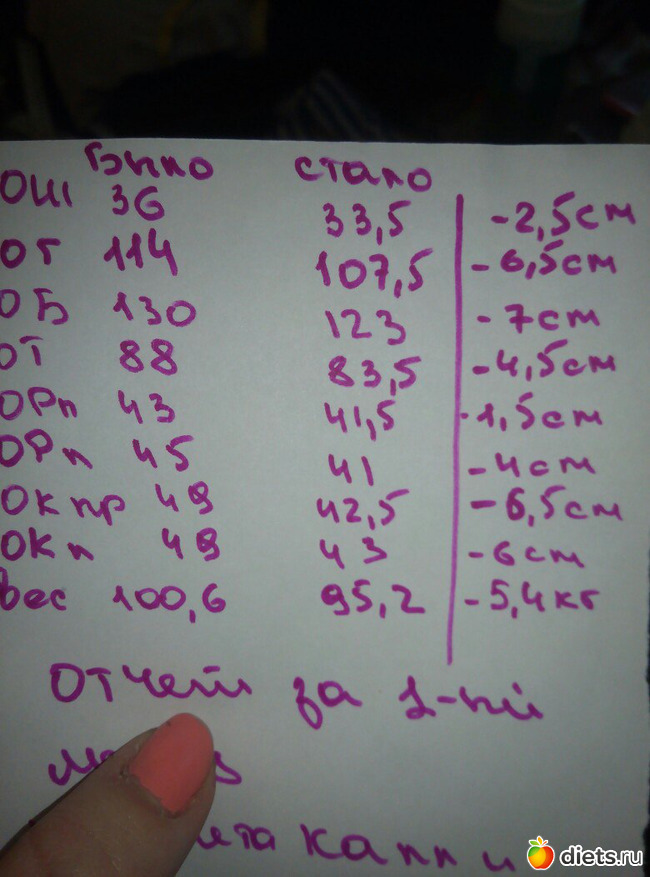 Было стало
ОШ 36 33,5 -2,5см
ОГ 114 107,5 -6,5см
ОБ 130 123 -7см
ОТ 88 83,5 -4,5см
ОРп 43 41,5 -1,5см
ОРл 45 41 -4см
ОК пр 49 42,5 -6,5см
ОКл 49 43 -6см
Вес 100,6 95,2 -5,4кг
Отчет за 1-ый
diets.ru